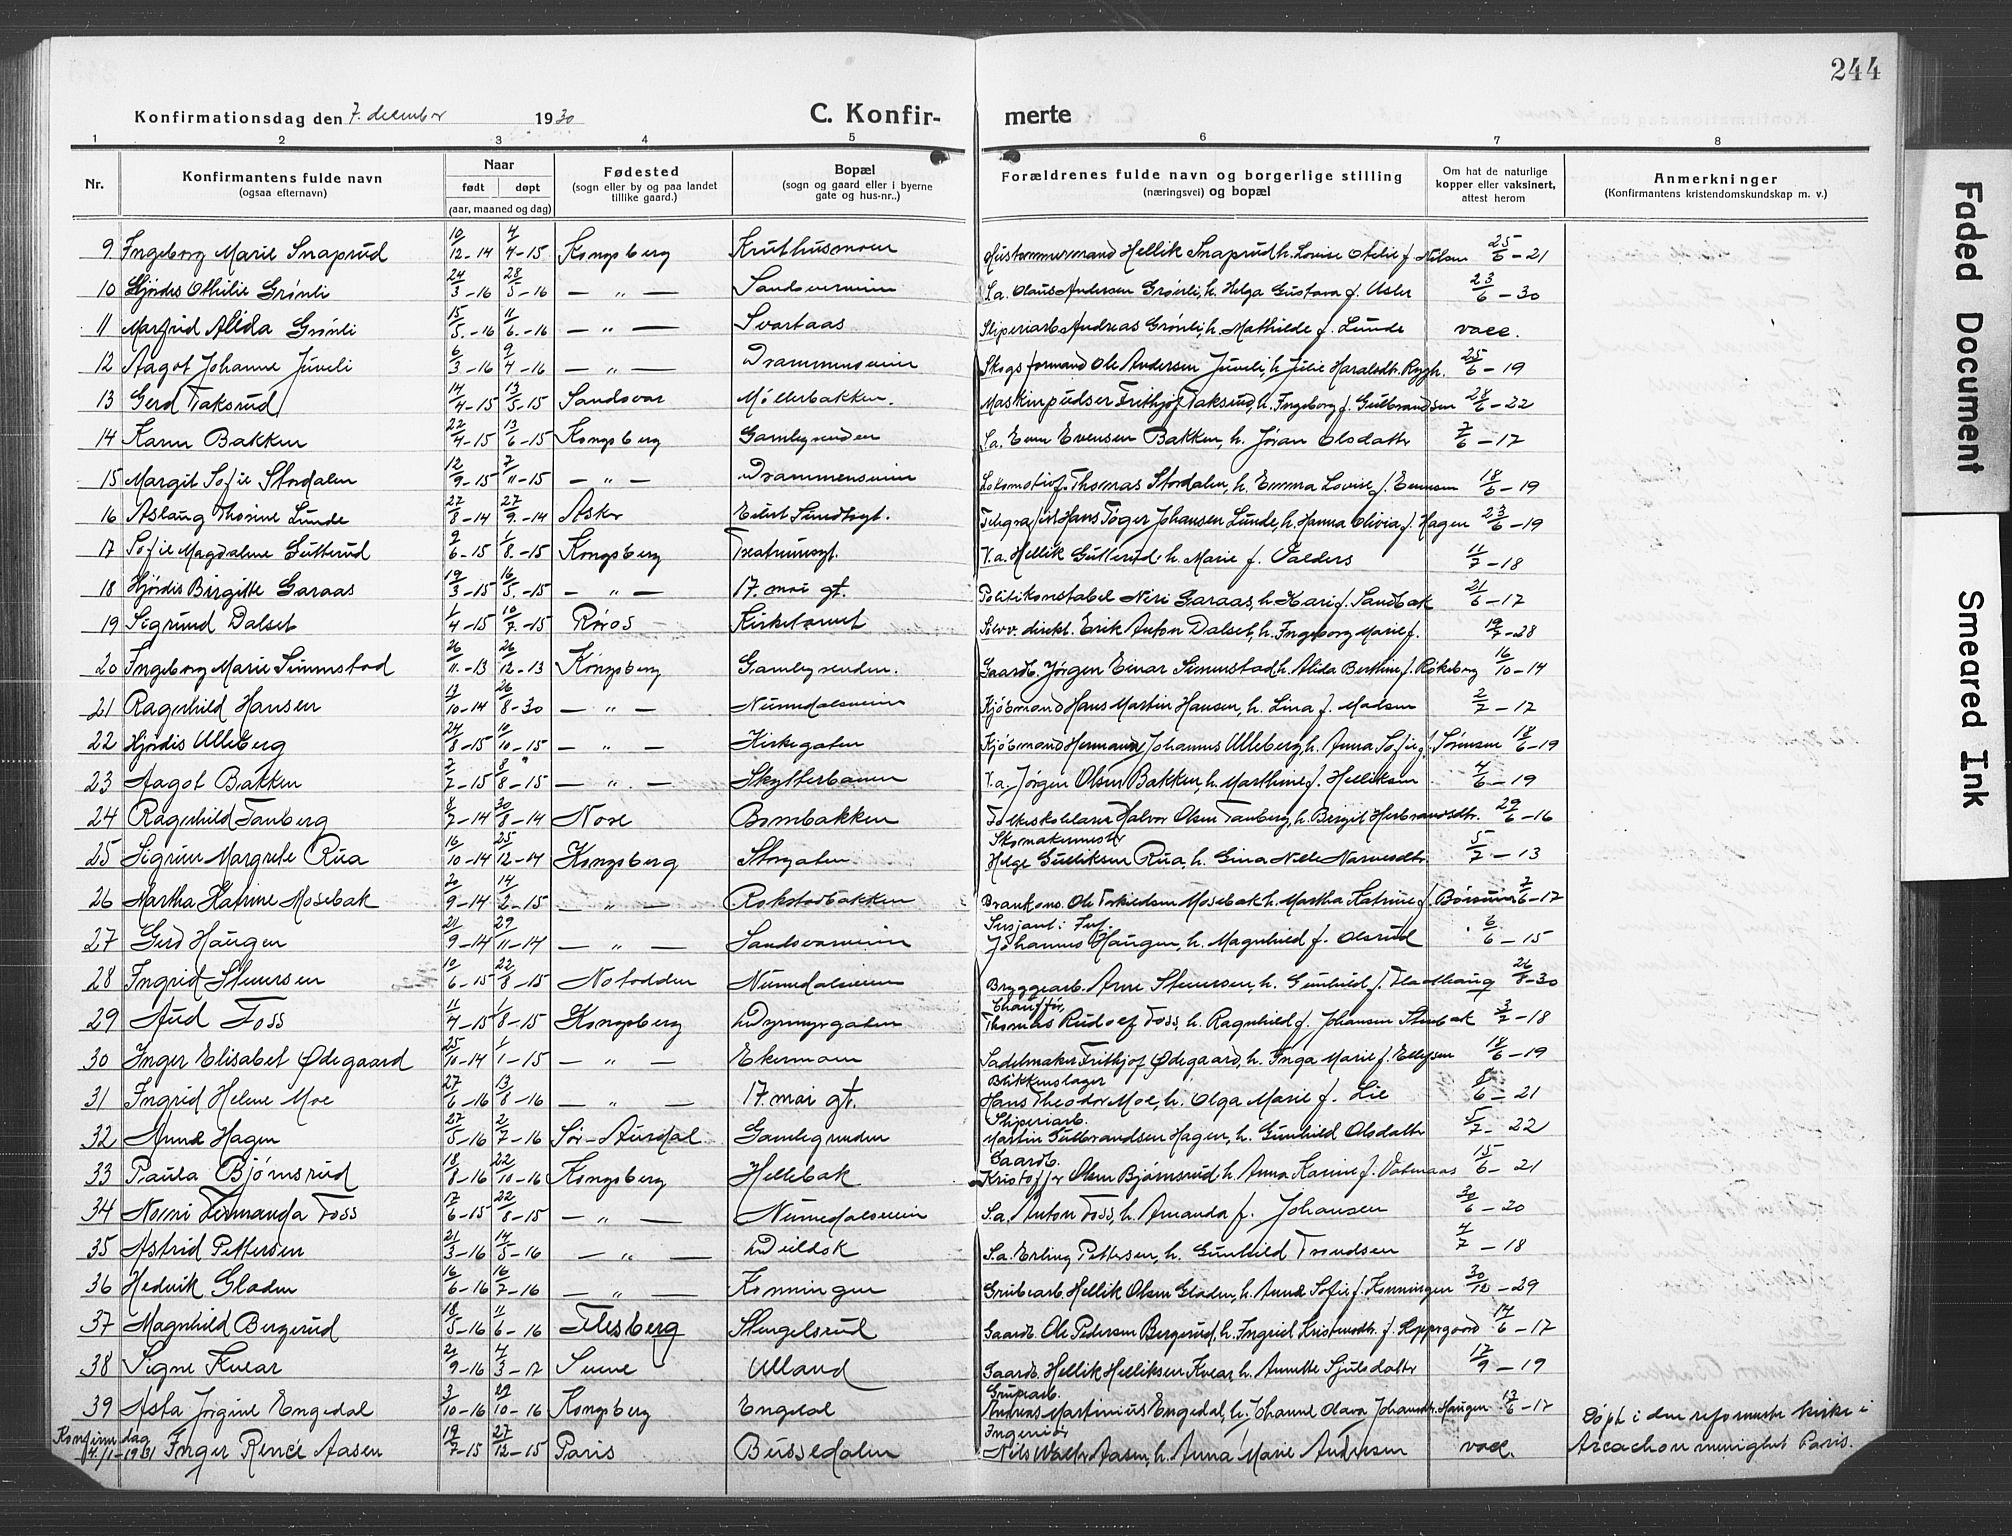 244
Konfirmationsdag den 7. december 1930
C. Konfirmerte
1 2 3 4 5 6 7 8
Nr.
Konfirmantens fulde navn
(ogsaa efternavn)
Naar
født døpt
(aar, maaned og dag)
Fødested
(sogn eller by og paa landet
tillike gaard.)
Bopæl
(sogn og gaard eller i byerne
gate og hus-nr..)
Forældrenes fulde navn og borgerlige stilling
(næringsvei) og bopæl
Om hat de naturlige
kopper eller vaksinert,
attest herom
Anmerkninger
(Konfirmantens kristendomskundskap m. v.)
9 Ingeborg Marie Snaprud 10/12-14 4/4-15 Kongsberg Kruthusmoen Hustømmermand Hellik Snaprud h. Lovise Otelie f. Nilsen 25/6-21
10 Hjørdis Othilie Grønli 24/3-16 28/5-16 — „ — Sandsverveien S.a. Olaus Andersen Grønli, h. Helga Gustava f. Usler 23/6-30
11 Marfrid Alida Grønli 15/5-16 11/6-16 — „ — Svartaas Sliperiarb. Andreas Grønli, h. Mathilde f. Lunde vacc.
12 Aagot Johanne Juveli 6/3-16 9/4-16 — „ — Drammensveien Skogsformand Ole Andersen Juveli, h. Julie Haraldsdtr. Rygh. 25/6-19
13 Gerd Taksrud 14/4-15 13/5-15 Sandsvær Møllerbakken. Maskinpudser Frithjof Taksrud, h. Ingeborg f. Gulbrandsen 24/6-22
14 Karen Bakken 22/4-15 13/6-15 Kongsberg Gamlegrenden S.a. Even Evensen Bakken, h. Jøran Olsdatter 7/6-17
15 Margit Sofie Stordalen 12/9-15 7/11-15 — „ — Drammensveien Lokomotivf. Thomas Stordalen, h. Emma Lovise f. Evensen 18/6-19
16 Aslaug Thorine Lunde 27/8-14 27/9-14 Asker Eilert Sundtsgt. Hans Toger Johansen Lunde, h. Hanna Olivia f. Hagen 23/6-19
17 Sofie Magdalene Gutterud 9/6-15 1/8-15 Kongsberg Teatersgt. V.a. Hellik Gutterud h. Marie f. Valders 11/7-18
18 Hjørdis Birgitte Garaas 19/3-15 16/5-15 — „ — 17. mai gt. Politikonstabel Neri Garaas, h. Kari f. Sandbæk 21/6-17
19 Sigrund Dalset 1/4-15 10/7-15 Røros Kirketorvet Sølvv. direkt. Erik Anton Dalset, h. Ingeborg Marie f. 19/7-28
20 Ingeborg Marie Simmstad 26/11-13 26/12-13 Kongsberg Gamlegrenden. Gaardb. Jørgen Einar Simmstad h. Alida Bertine f. Røkeberg 16/10-14
21 Ragnhild Hansen 13/10-14 26/8-30 — „ — Numedalsveien Kjøbmand Hans Martin Hansen, h. Lina f. Madsen 2/7-17
22 Hjørdis Ulleberg 24/8-15 10/10-15 — „ — Kirkegaten Kjøbmand Hermand Johannes Ulleberg h. Anna Sofie f. Sørensen 18/6-19
23 Aagot Bakken 7/7-15 8/8-15 — „ — Skytterbanen V.a. Jørgen Olsen Bakken, h. Marthine f. Helliksen 4/6-19
24 Ragnhild Tanberg 8/7-14 30/8-14 Nore Bombakken Folkeskolelærer Halvor Olsen Tanberg, h. Bergit Herbrandsdtr. 29/6-16
25 Sigrun Margrete Rua 16/10-14 25/12-14 Kongsberg Storgaten Skomakermester
Helge Gulliksen Rua, h. Gina Nels Narvesdtr. 5/7-13
26 Martha Katrine Mosebak 20/9-14 14/2-15 — „ — Rokstadbakken Ole Torkildsen Mosebak h. Martha Katrine f. 7/6-17
27 Gerd Haugen 21/9-14 29/11-14 — „ — Sandsværveien Sersjant i Inf.
Johannes Haugen, h. Magnhild f. Olsrud 6/6-15
28 Ingrid Steversen 10/6-15 22/8-15 Notodden Numedalsveien Bryggearb. Arne Steversen, h. Gunhild f. Fladthaug 26/8-30
29 Aud Foss 11/4-15 1/8-15 Kongsberg Dyrmyrgaten Chauffør
Thomas Rudolf Foss, h. Ragnhild f. Johansen Stubæk 3/7-18
30 Inger Elisabet Ødegaard 25/10-14 1/1-15 — „ — Ekermoen Sadelmaker Frithjof Ødegaard, h. Inga Marie f. Ellefsen 18/6-19
31 Ingrid Helene Moe 27/6-16 13/8-16 — „ — 17 mai gt. Blikkenslager
Hans Theodor Moe, h. Olga Marie f. Lie 8/6-21
32 Anne Hagen 27/5-16 2/7-16 Sør-Aurdal Gamlegrenden Sliperiarb.
Martin Gulbrandsen Hagen, h. Gunhild Olsdatter 5/7-22
33 Paula Bjørnsrud 18/8-16 22/10-16 Kongsberg Hellebæk Gaardb.
Kristoffer Olsen Bjørnsrud h. Anna Karine f. Vatnaas 15/6-21
34 Nonni Fernanda Foss 17/6-15 22/8-15 — „ — Numedalsveien S.a. Anton Foss, h. Amanda f. Johansen 30/6-20
35 Astrid Pettersen 21/3-16 14/5-16 — „ — S.a. Erling Pettersen, h. Gunhild Trondsen 4/7-18
36 Hedvik Gladen 16/6-16 16/7-16 — „ — Konningen Grubearb. Hellik Olsen Gladen, h. Anne Sofie f. Konningen 30/12-29
37 Magnhild Bergerud 18/5-16 11/6-16 Flesberg Stengelsrud Gaardb. Ole Pedersen Bergerud, h. Ingrid Kristensdtr. f. Hoppegaard 14/6-17
38 Signe Kvear 21/9-16 4/3-17 Svene Ulland Gaardb. Hellik Helliksen Kvear, h. Annette Gjulsdatter 17/9-19
39 Asta Jørgine Engedal 3/10-16 29/10-16 Kongsberg Engedal Grubearb.
Andreas Martinius Engedal, h. Johanne Olava Johansdtr. Haugen 13/6-17
Konfirm. dag
4/1-1931 Inger Renée Aasen 19/7-15 27/12-15 Paris Bussedalen Ingeniør
Nils Walter Aasen, h. Anna Marie Andersen vacc. Døpt i den reformerte kirke i
Arcachon menighet Paris.
Faded Document
Smeared Ink